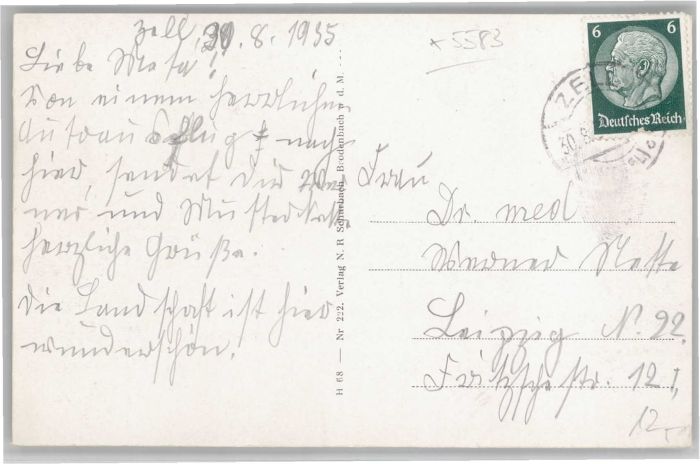 Zell, 30.8.1935
Liebe Meta!
Von einem herrlichen
Autoausflug nach
hier, sendet Dir
und
herzliche Grüße.
Die Landschaft ist hier
wunderschön.
H 68 — Nr 222. Verlag N. R Scharbach, Brodenbach a d. M
* 5583
6 6
Deutsches Reich
ZE
30.8
Frau
Dr. med
Werner
Leipzig N. 22.
Fritzschestr. 12 I,
12,-